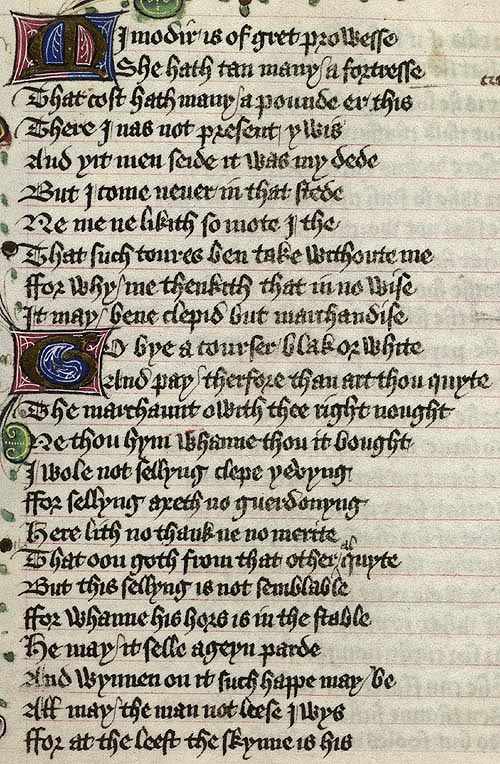 Mi modir is of gret prowesse
She hath tan many a fortresse
That cost hath many a pounde er this
There I nas not present ywis
And yit men seide it was my dede
But I come neuer in that stede
Ne me ne likith so mote I the
That such toures ben take withoute me
ffor why me thenkith that in no wise
It may bene clepid but marchandise
Go bye a courser blak or white
And pay therfore than art thou quyte
The marchaunt owith thee right nought
Ne thou hym whanne thou it bought
I wole not sellyng clepe yevyng
ffor sellyng axeth no guerdonyng
Here lith no thank ne no merite
That oon goth from that other al quyte
But this sellyng is not semblable
ffor whanne his hors is in the stable
He may it selle ageyn parde
And wynnen on it such happe may be
All may the man not leese I wys
ffor at the leest the skynne is his